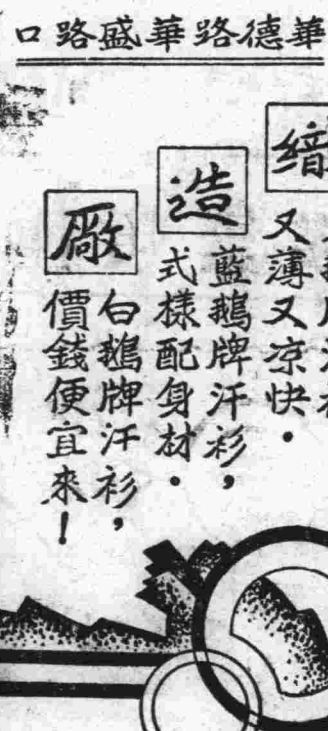 華德路華盛路口
又薄又凉快．
造
藍鵝牌汗衫，
式樣配身材．
廠
白鵝牌汗衫，
價錢便宜來！